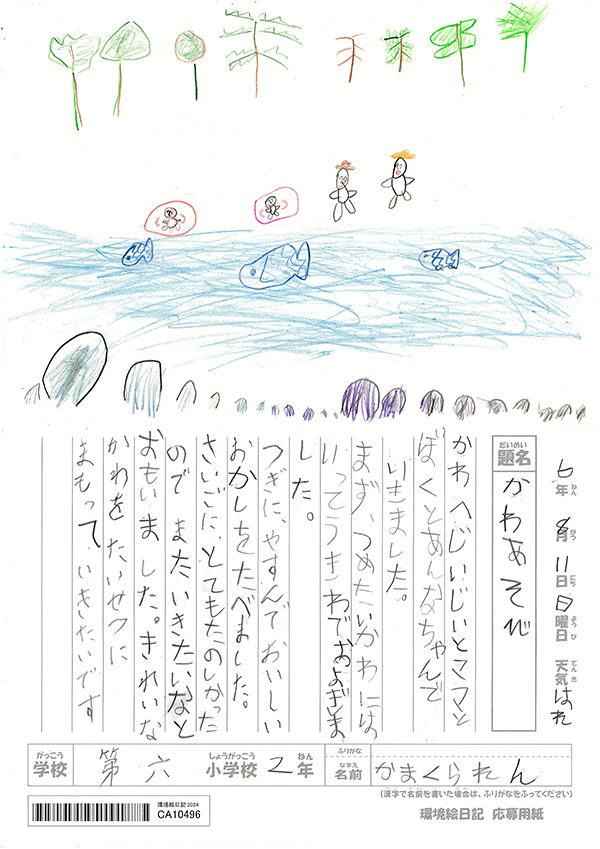 6年8月11日日曜日 天気はれ
ねん がつ にち ようび てんき
だいめい
題名
かわあそび
かわへじいじいとママと
ぼくとあんなちゃんで
いきました。
まず、つめたいかわには
いってうきわで、およぎま
した。
つぎに、やすんでおいしい
おかしをたべました。
さいごに、とてもたのしかった
のでまたいきたいなと
おもいました。きれいな
かわをたいせつに
まもっていきたいです
がっこう しょうがっこう ねん
学校 第六 小学校 2年
ふりがな
なまえ
名前 かまくられん
(漢字で名前を書いた場合は、ふりがなをふってください)
環境絵日記2024
CA10496
環境絵日記 応募用紙